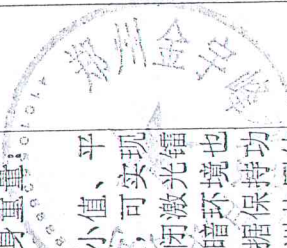 身重量:
小值、平
可实现
闭激光镭
暗环境也
据保持功
州金